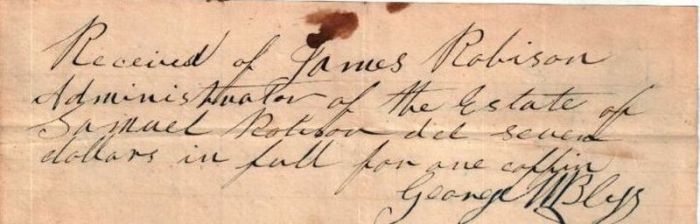 Received of James Robison
Administrator of the Estate of
Samuel Robison dcd seven
dollars in full for one coffin
George M Blys